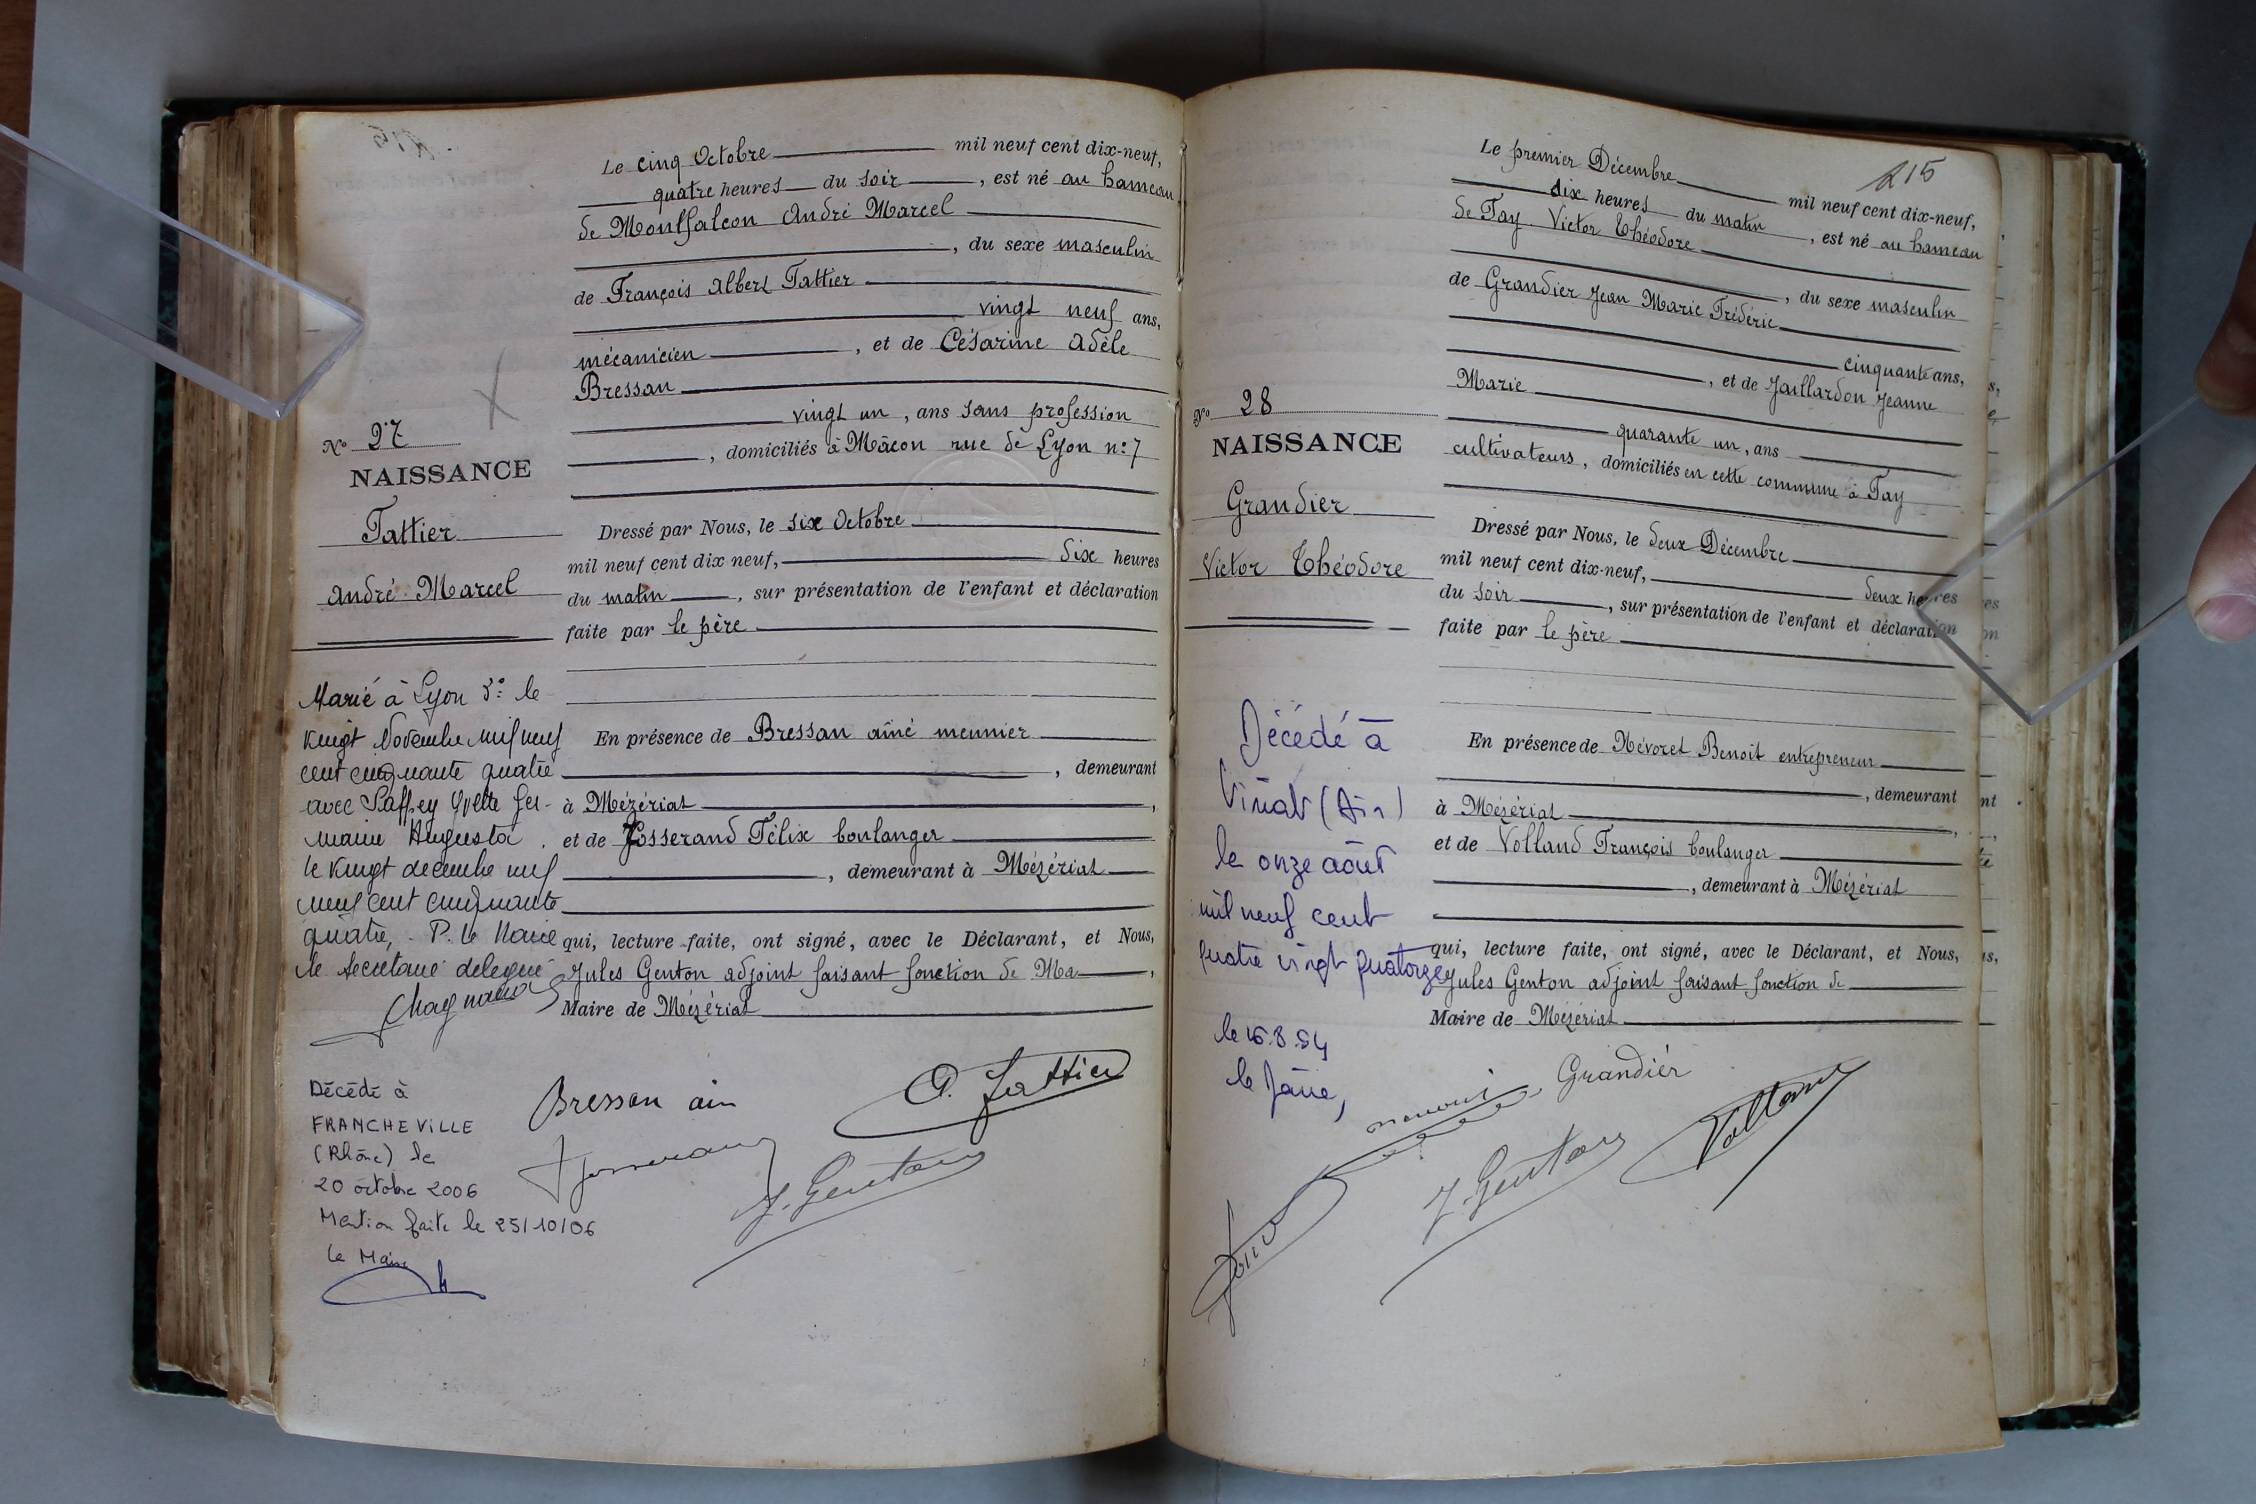 Le cinq Octobre mil neuf cent dix-neuf,
quatre heures du soir, est né au hameau
de Montfalcon André Marcel
, du sexe masculin
de François Albert Tattier
vingt neuf ans,
mécanicien, et de Césarine Adèle
Bressan
vingt un, ans sans profession
, domiciliés à Mâcon rue de Lyon n: 7
Nº 27
NAISSANCE
Tattier
André Marcel
Dressé par Nous, le six Octobre
mil neuf cent dix neuf, dix heures
du matin, sur présentation de l'enfant et déclaration
faite par le père
En présence de Bressan aîné meunier
, demeurant
à Mézériat,
et de Josserand Félix boulanger
, demeurant à Mézériat
qui, lecture faite, ont signé, avec le Déclarant, et Nous,
Jules Genton adjoint faisant fonction de Ma,
Maire de Mézériat
Marié à Lyon 3º le
vingt Novembre mil neuf
cent cinquante quatre
avec Yvette Ger-
maine Augusta.
le vingt decembre mil
neuf cent cinquante
quatre, P. le Maire
le secretaire delegué
Décédé à
FRANCHEVILLE
(Rhône) le
20 octobre 2006
Mention faite le 25/10/06
Le Maire
Bressan ain
A. Tattier
Josserand
J. Genton
215
Le premier Décembre mil neuf cent dix-neuf,
dix heures du matin, est né au hameau
de Tay Victor Théodore
, du sexe masculin
de Grandier Jean Marie Frédéric
cinquante ans,
, et de Jaillardon Jeanne
Marie
quarante un, ans
cultivateurs, domiciliés en cette commune à Tay
Nº 28
NAISSANCE
Grandier
Victor Théodore
Dressé par Nous, le deux Décembre
mil neuf cent dix-neuf, deux heures
du soir, sur présentation de l'enfant et déclaration
faite par le père
En présence de Névoret Benoit entrepreneur
, demeurant
à Mézériat,
et de Volland François boulanger
, demeurant à Mézériat
qui, lecture faite, ont signé, avec le Déclarant, et Nous,
Jules Genton adjoint faisant fonction de
Maire de Mézériat
Décédé à
Viriat (Ain)
le onze août
mil neuf cent
quatre vingt quatorze
le Maire,
Grandier
J. Genton
Volland